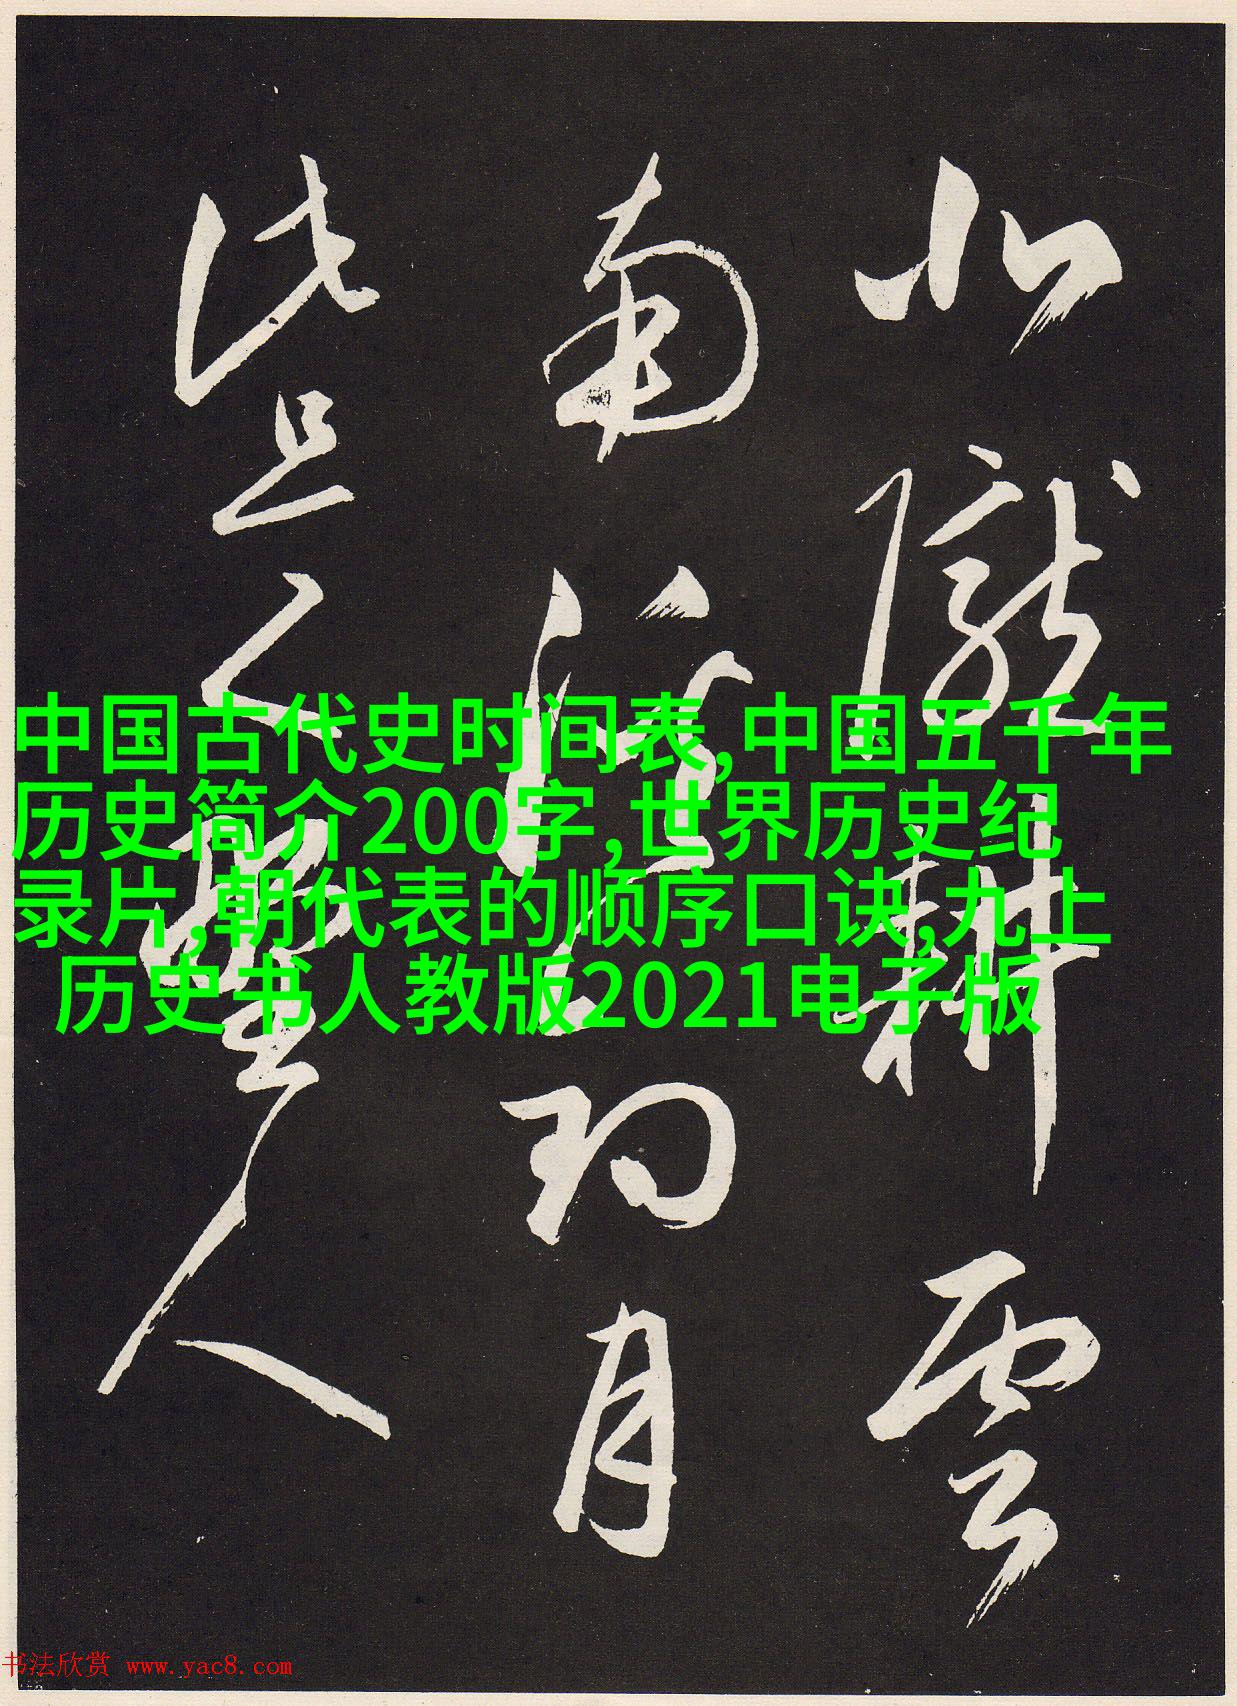 北隴耕雲
南溪釣月
此是野人
中国古代史时间表,中国五千年
历史简介200字,世界历史纪
录片,朝代表的顺序口诀,九上
历史书人教版2021电子版
书法欣赏 www.yac8.com